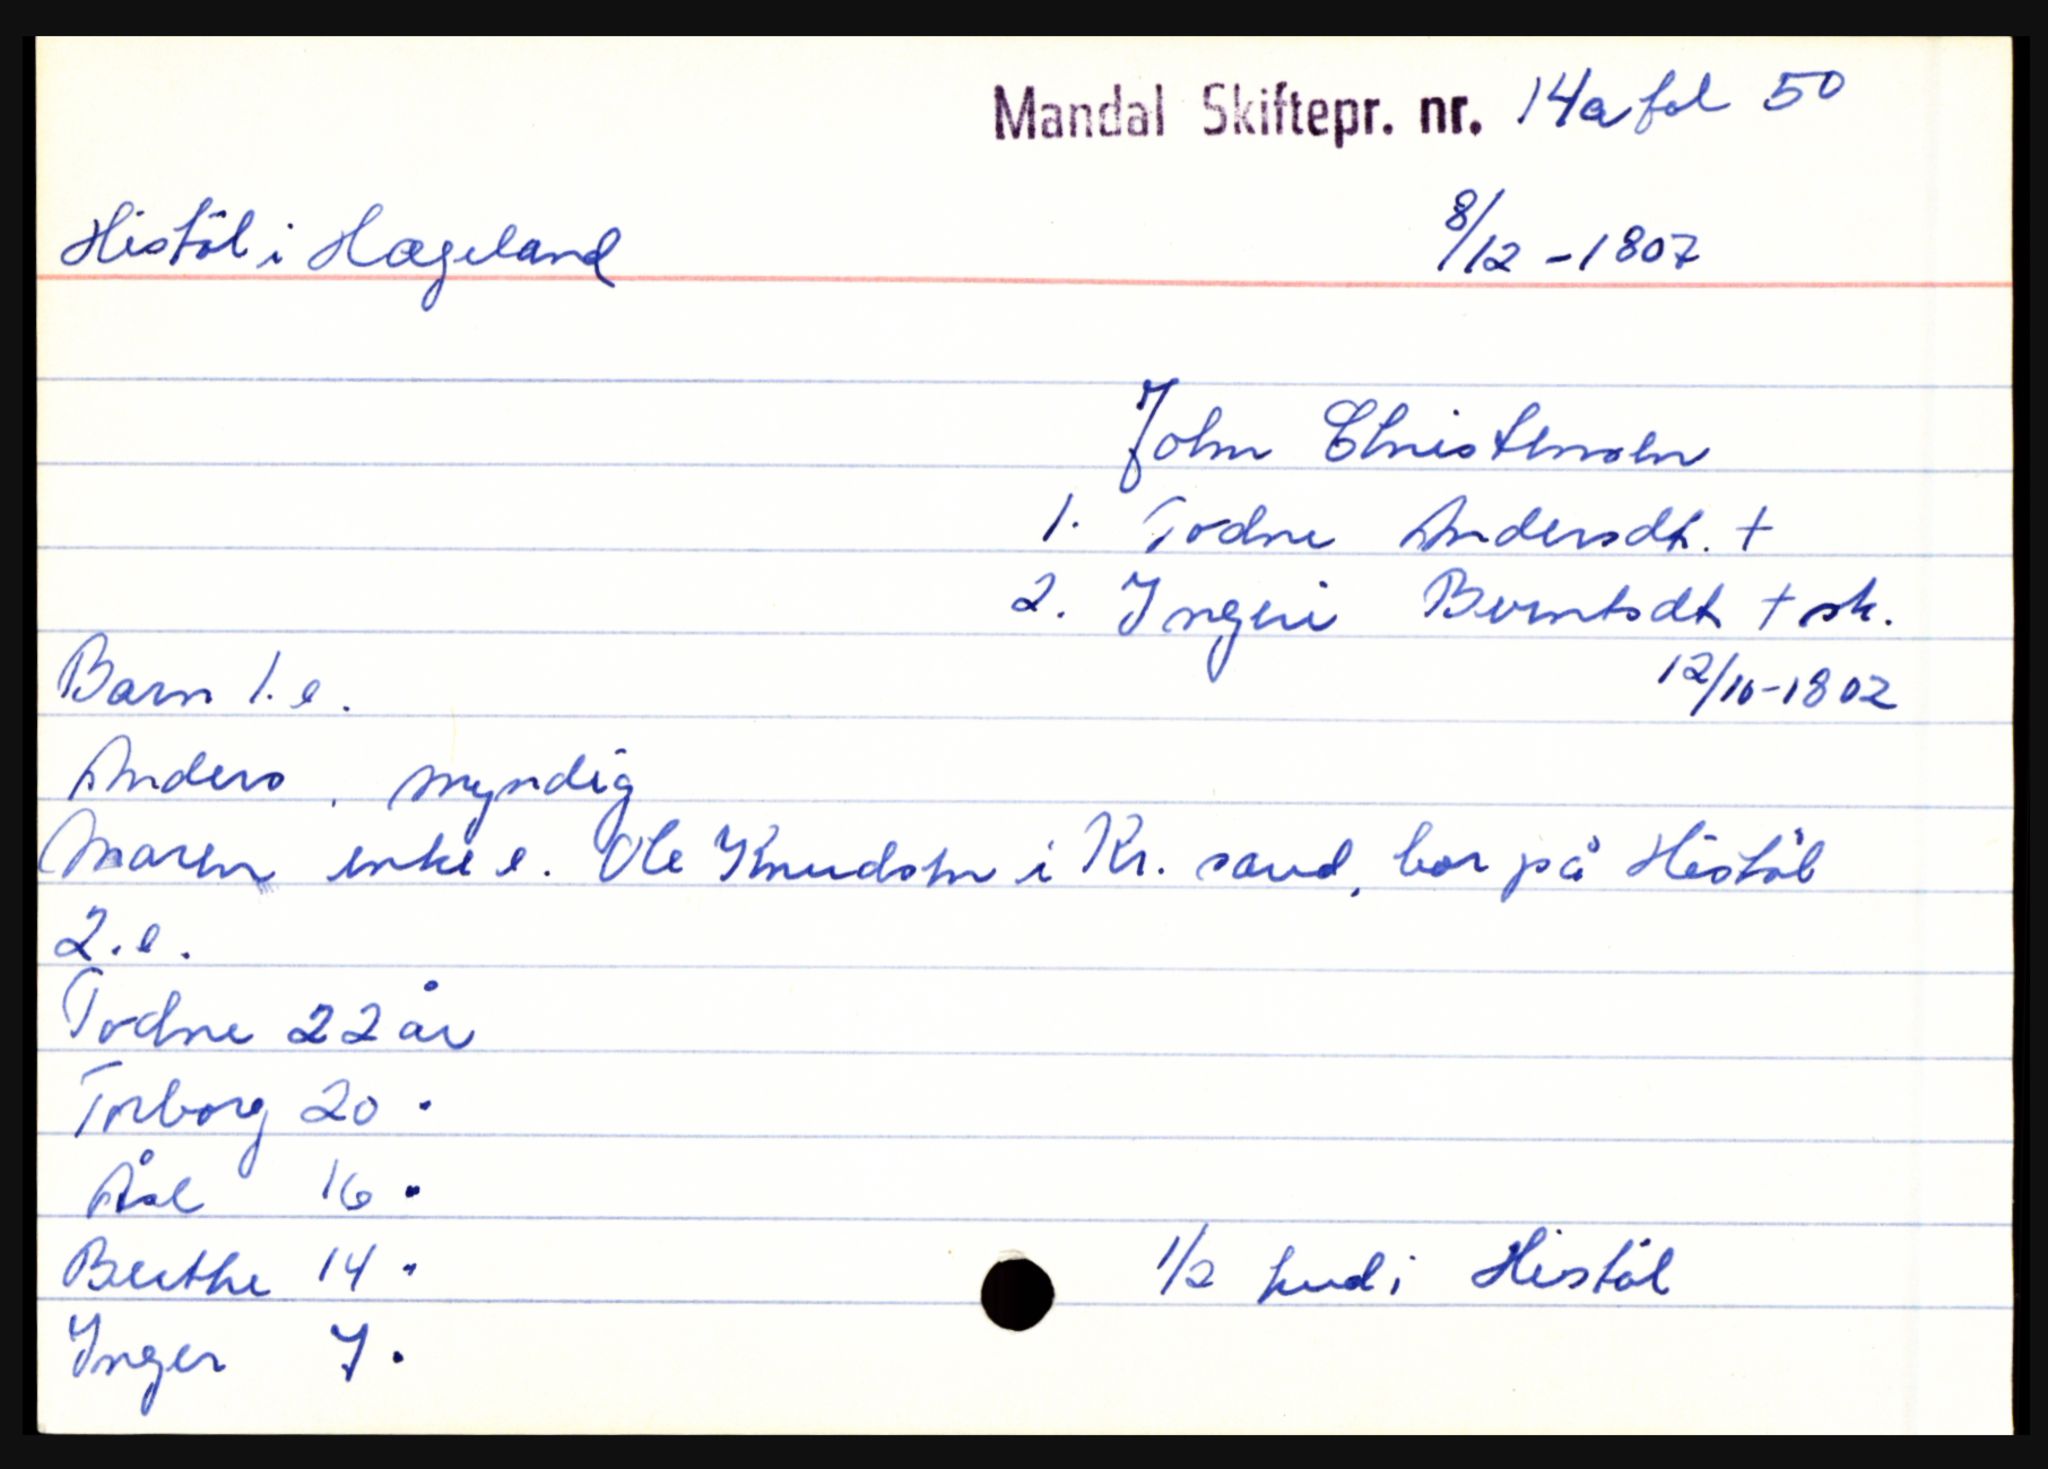 Mandal Skiftepr. nr. 14a fol 50
Histöl i Hægeland 8/12 - 1807
John Christensen
1. Todne Andersdt. +
2. Ingeri Berntsdt + sk.
12/10-1802
Barn 1. e.
Anders, myndig
Maren enke e. Ole Knudsen i Kr. sand, bor på Histöl
2. e.
Todne 22 år
Torborg 20 "
Åse 16 "
Berthe 14 "
Inger 7 "
1/2 hud i Histöl